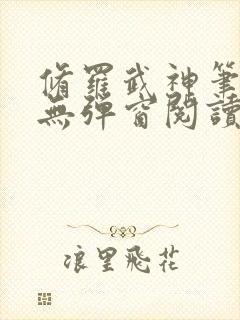 脩羅武神筆
無彈窗閱讀
浪里飛花